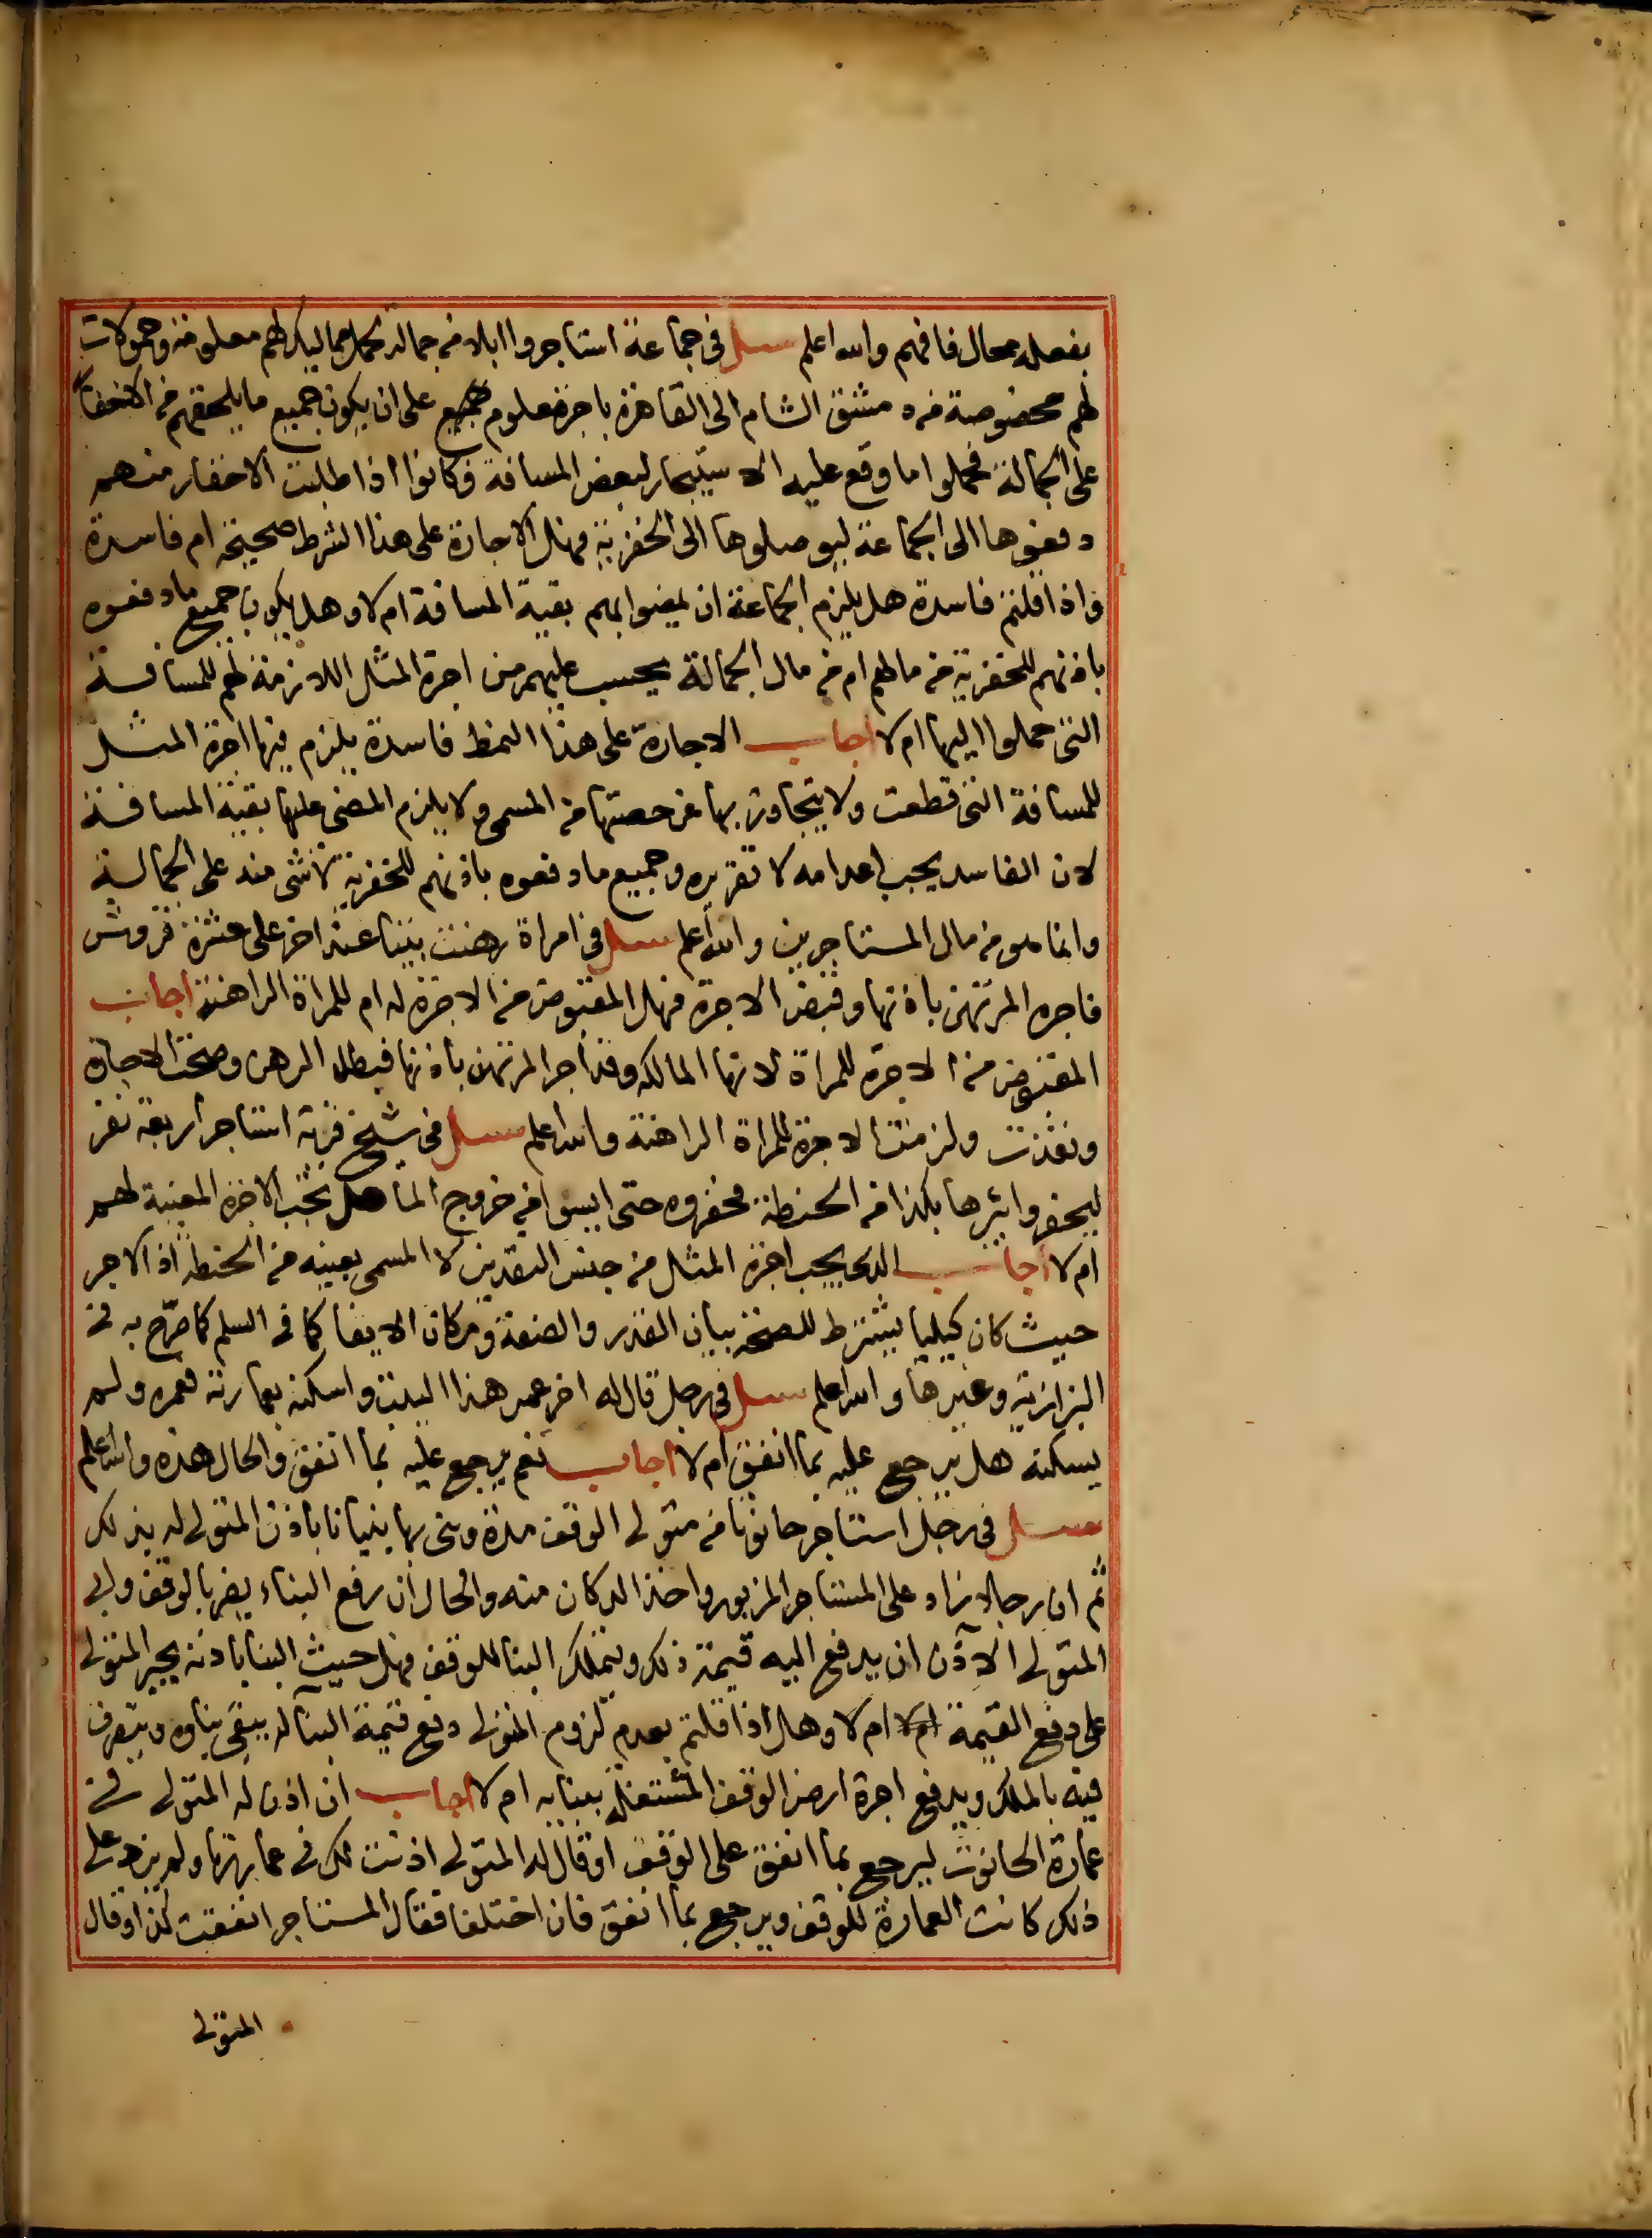 بفعله محال فافهم والله اعلم سئل فى جماعة استاجروا ابلا من جمالة لحمل مماليك لهم معلومة وحمولات
لهم مخصوصة من دمشق الشام الى القاهرة باجرة معلومة على ان يكون جميع ما يلحقهم من الاخفار
على الجمالة فحملوا ما وقع عليه الاستيجار لبعض المسافة وكانوا اذا طلبت الاخفار منهم
دفعوها الى الجماعة ليوصلوها الى الخفرية فهل الاجارة على هذا الشرط صحيحة ام فاسدة
واذا قلتم فاسدة هل يلزم الجماعة ان يمضوا بهم بقية المسافة ام لا وهل يكون جميع ما دفعوه
باذنهم للخفرية من مالهم ام من مال الجمالة يحسب عليهم من اجرة المثل اللازمة لهم للمسافة
التى حملوا اليها ام لا اجاب الاجارة على هذا النمط فاسدة يلزم فيها اجرة المثل
للمسافة التى قطعت ولا يتجاوز بها عن حصتها من المسمى ولا يلزم المضى عليها بقية المسافة
لان الفاسد يجب اعدامه لا تقريره وجميع ما دفعوه باذنهم للخفرية لا شى منه على الجمالة
وانما هو من مال المستاجرين والله اعلم سئل فى امراة رهنت بيتا عند اخر على عشرة قروش
فاجره المرتهن باذنها وقبض الاجرة فهل المقبوض من الاجرة له ام للمراة الراهنة اجاب
المقبوض من الاجرة للمراة لانها المالكة وقد اجر المرتهن باذنها فبطل الرهن وصحت الاجارة
ونفذت ولزمت الاجرة للمراة الراهنة والله اعلم سئل فى شيخ قرية استاجر اربعة نفر
ليحفروا بئرها بكذا من الحنطة فحفروه حتى ايسوا من خروج الما هل تجب الاجرة المعينة لهم
ام لا اجاب الذى يجب اجرة المثل من جنس النقدين لا المسمى بعينه من الحنطة اذ الاجر
حيث كان كيليا يشترط للصحة بيان القدر والصفة ومكان الايفا كما فى السلم كما صرح به فى
البزازية وغيرها والله اعلم سئل فى رجل قال له اخر عمر هذا البيت واسكنه بعمارته فعمره ولم
يسكنه هل يرجع عليه بما انفق ام لا اجاب نعم يرجع عليه بما انفق والحال هذه والله اعلم
سئل فى رجل استاجر حانوتا من متولى الوقف مدة وبنى بها بنيانا باذن المتولى له بذلك
ثم ان رجلا زاد على المستاجر المزبور واخذ الدكان منه والحال ان رفع البناء يضر بالوقف وابى
المتولى الآذن ان يدفع اليه قيمة ذلك ويتملك البنا للوقف فهل حيث البنا باذنه يجبر المتولى
على دفع القيمة ام لا وهل اذا قلتم بعدم لزوم المتولى دفع قيمة البنا له يبقى بناوه ويتصرف
فيه بالملك ويدفع اجرة ارض الوقف المشتغلة ببنايه ام لا اجاب ان اذن له المتولى فى
عمارة الحانوت ليرجع بما انفق على الوقف او قال له المتولى اذنت لك فى عمارتها ولم يزد على
ذلك كانت العمارة للوقف ويرجع بما انفق فان اختلفا فقال المستاجر انفقت كذا وقال
المتولى